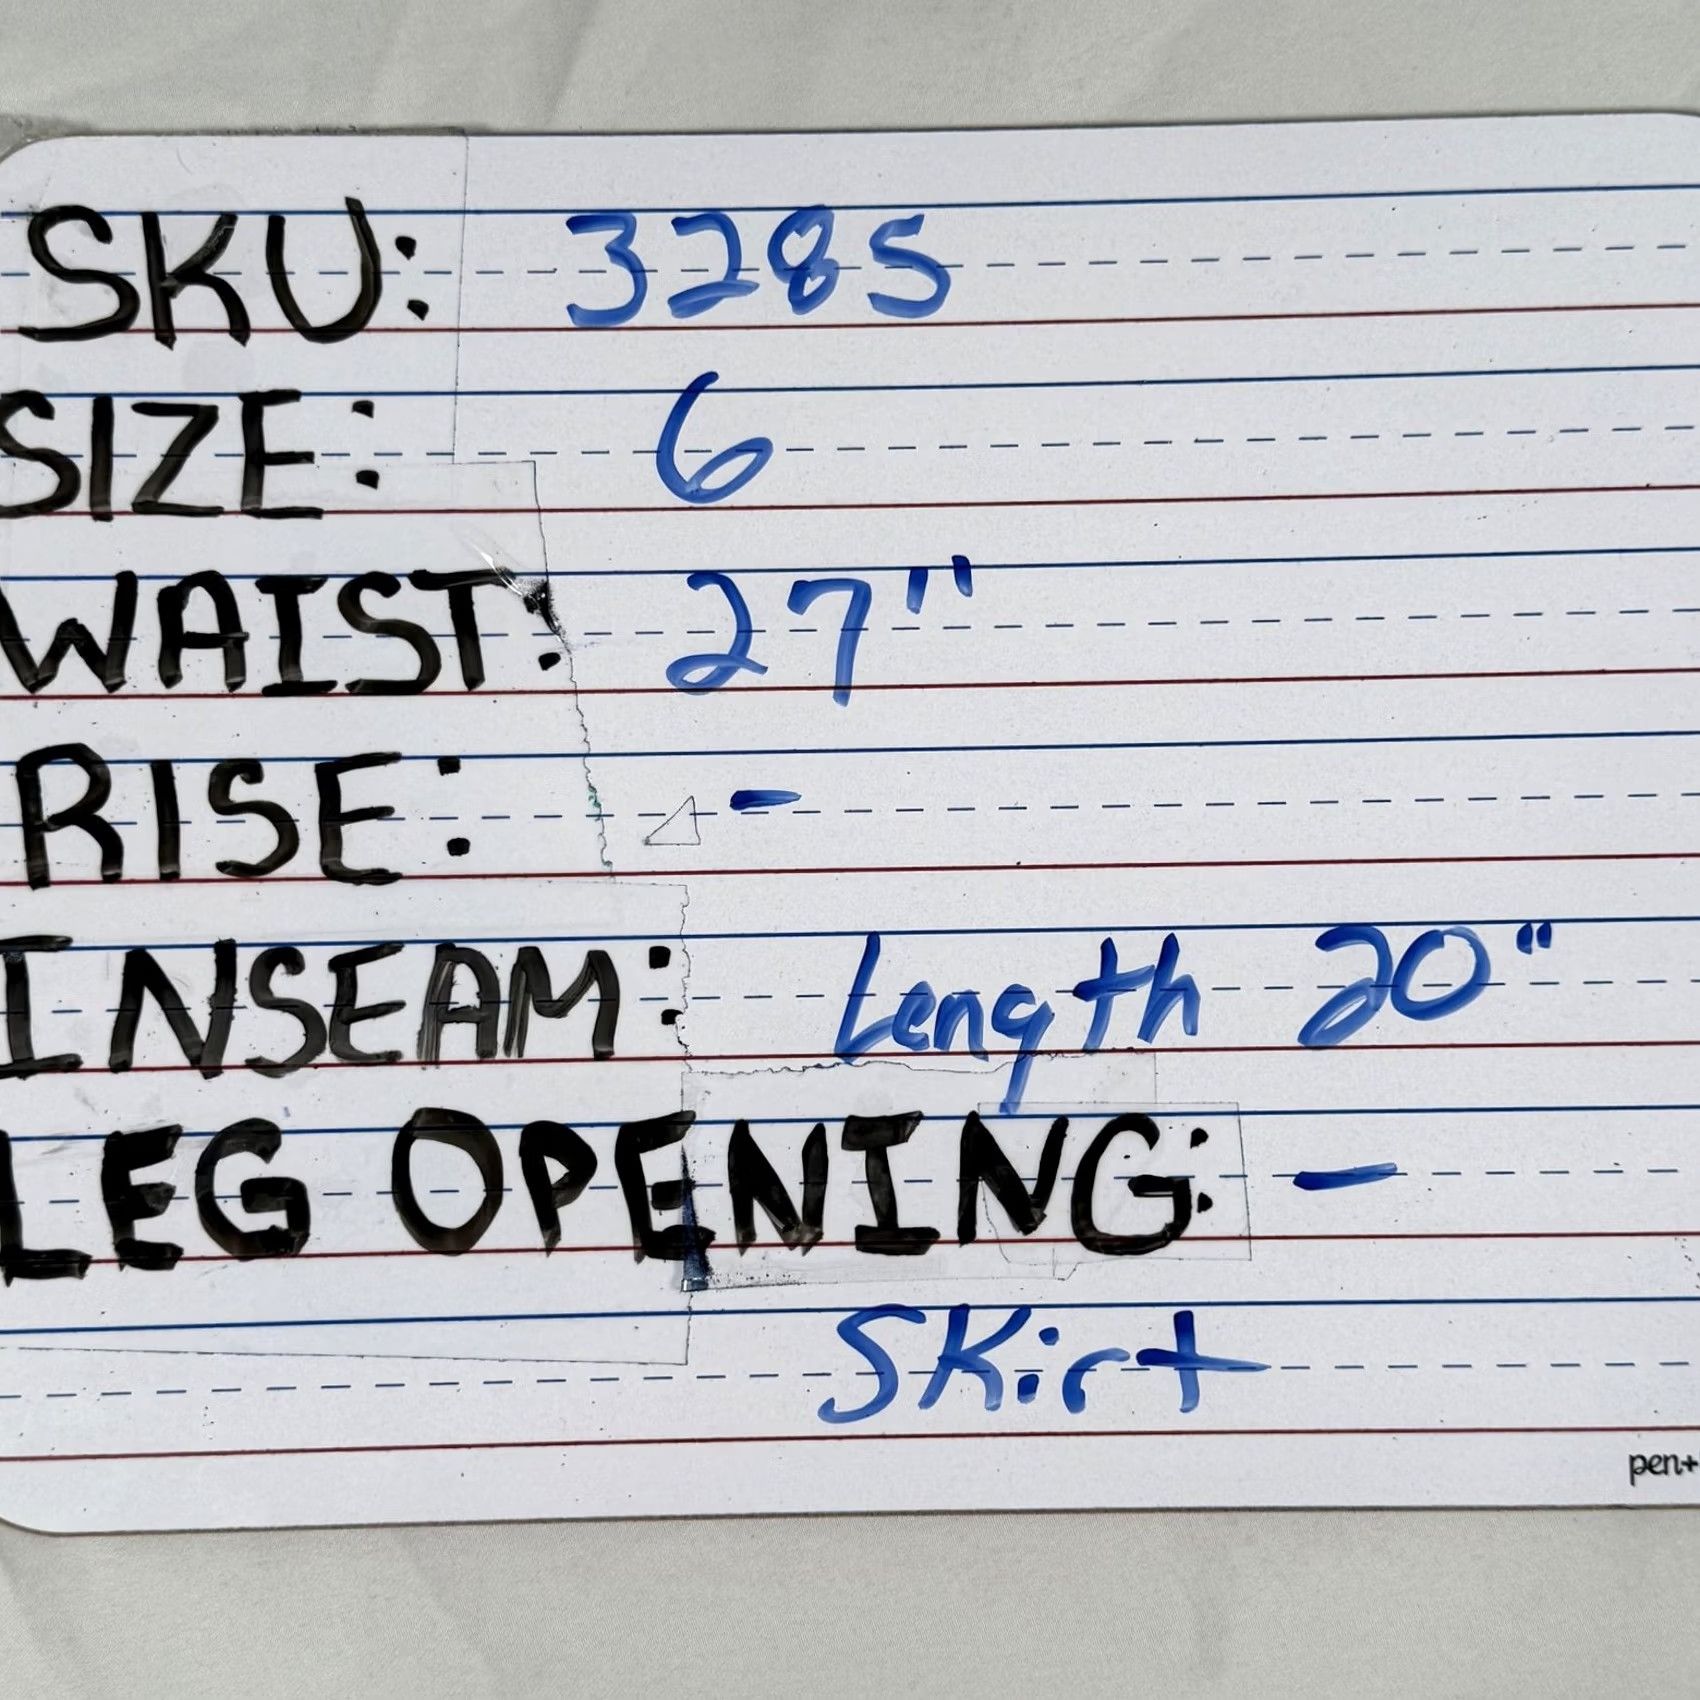 SKU: 3285
SIZE: 6
WAIST: 27"
RISE: -
INSEAM: Length 20"
LEG OPENING: -
SKirt
pen+